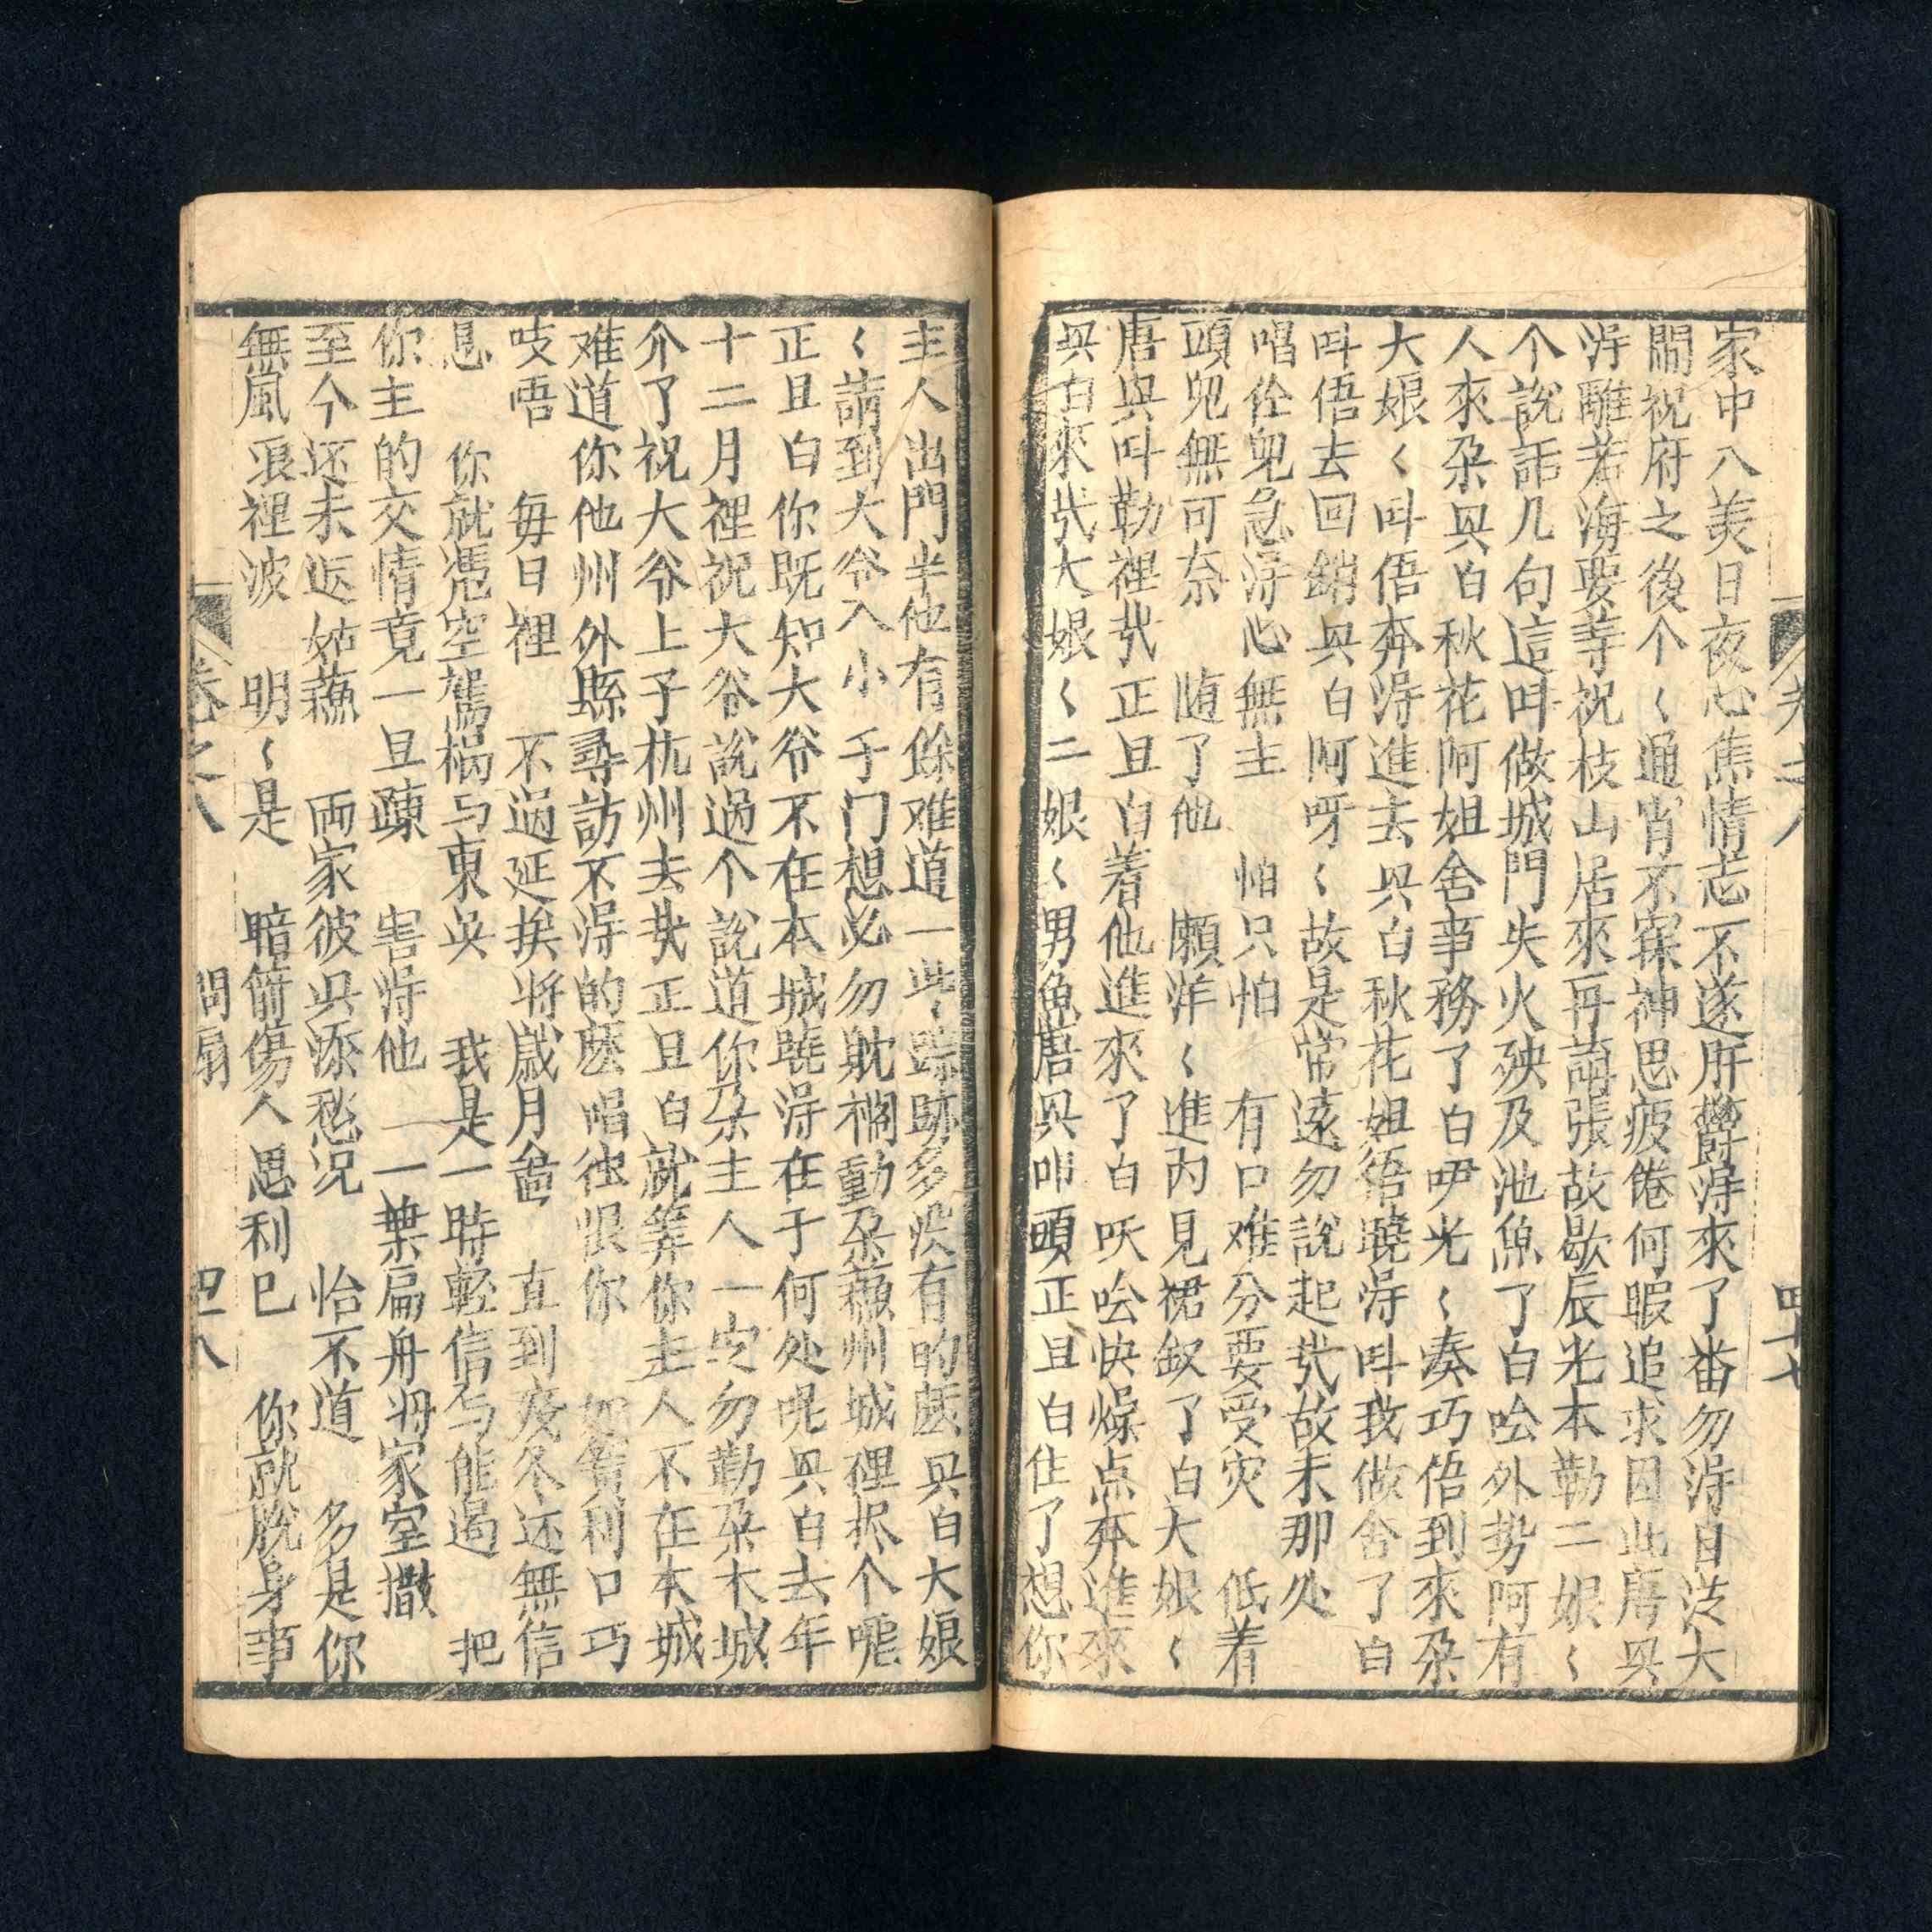 卷之八 四十七
家中八美日夜心焦情志不遂肝欝淂來了番勿淂日泛大
閙祝府之後个〻通宵不寐神思疲倦何暇追求因此唐興
淂雖若海要等祝枝山居來再請張故歇辰光本勒二娘〻
个說話几句這叫做城門失火殃及池魚了白吤外势阿有
人來朶興白秋花阿姐舍事務了白吚光〻奏巧俉到來朶
大娘〻呌俉奔淂進去興白秋花姐俉曉淂呌我做舍了白
呌俉去回銷興白阿呀〻故是常遠勿說起哉故末那处
唱佺皃急淂心無主 怕只怕 有口难分要受灾 低着
頭皃無可奈 随了他 願洋〻進內見裙釵了白大娘〻
唐興呌勒裡哉正旦白着他進來了白吷吤快燥点奔進來
興白來哉大娘〻二娘〻男魚唐興叩頭正旦白住了想你
主人出門半他有餘难道一些〻踪跡多没有的麽興白大娘
〻請到大爷入小 于门想必勿躭襉動朶蘓州城裡掁个嚦
正旦白你既知大爷不在本城曉淂在于何处呢興白去年
十二月裡祝大爷說過个說道你朶主人一定勿勒朶本城
介了祝大爷上子杭州去哉正旦白就筭你主人不在本城
难道你他州外縣尋訪不淂的麽唱徃恨你 如簧利口巧
吱唔 每日裡 不過延挨将歲月酓 直到夜冬还無信
息 你就凴空駕禍与東吳 我是一時輕信与能遏 把
你主的交情竟一旦疎 害淂他 一葉扁舟将家室撒
至今还未返姑蘓 両家彼興添愁况 恰不道 多是你
無風浪裡波 明〻是 暗箭傷人思利已 你就脫身事
卷之八 問扇 四八